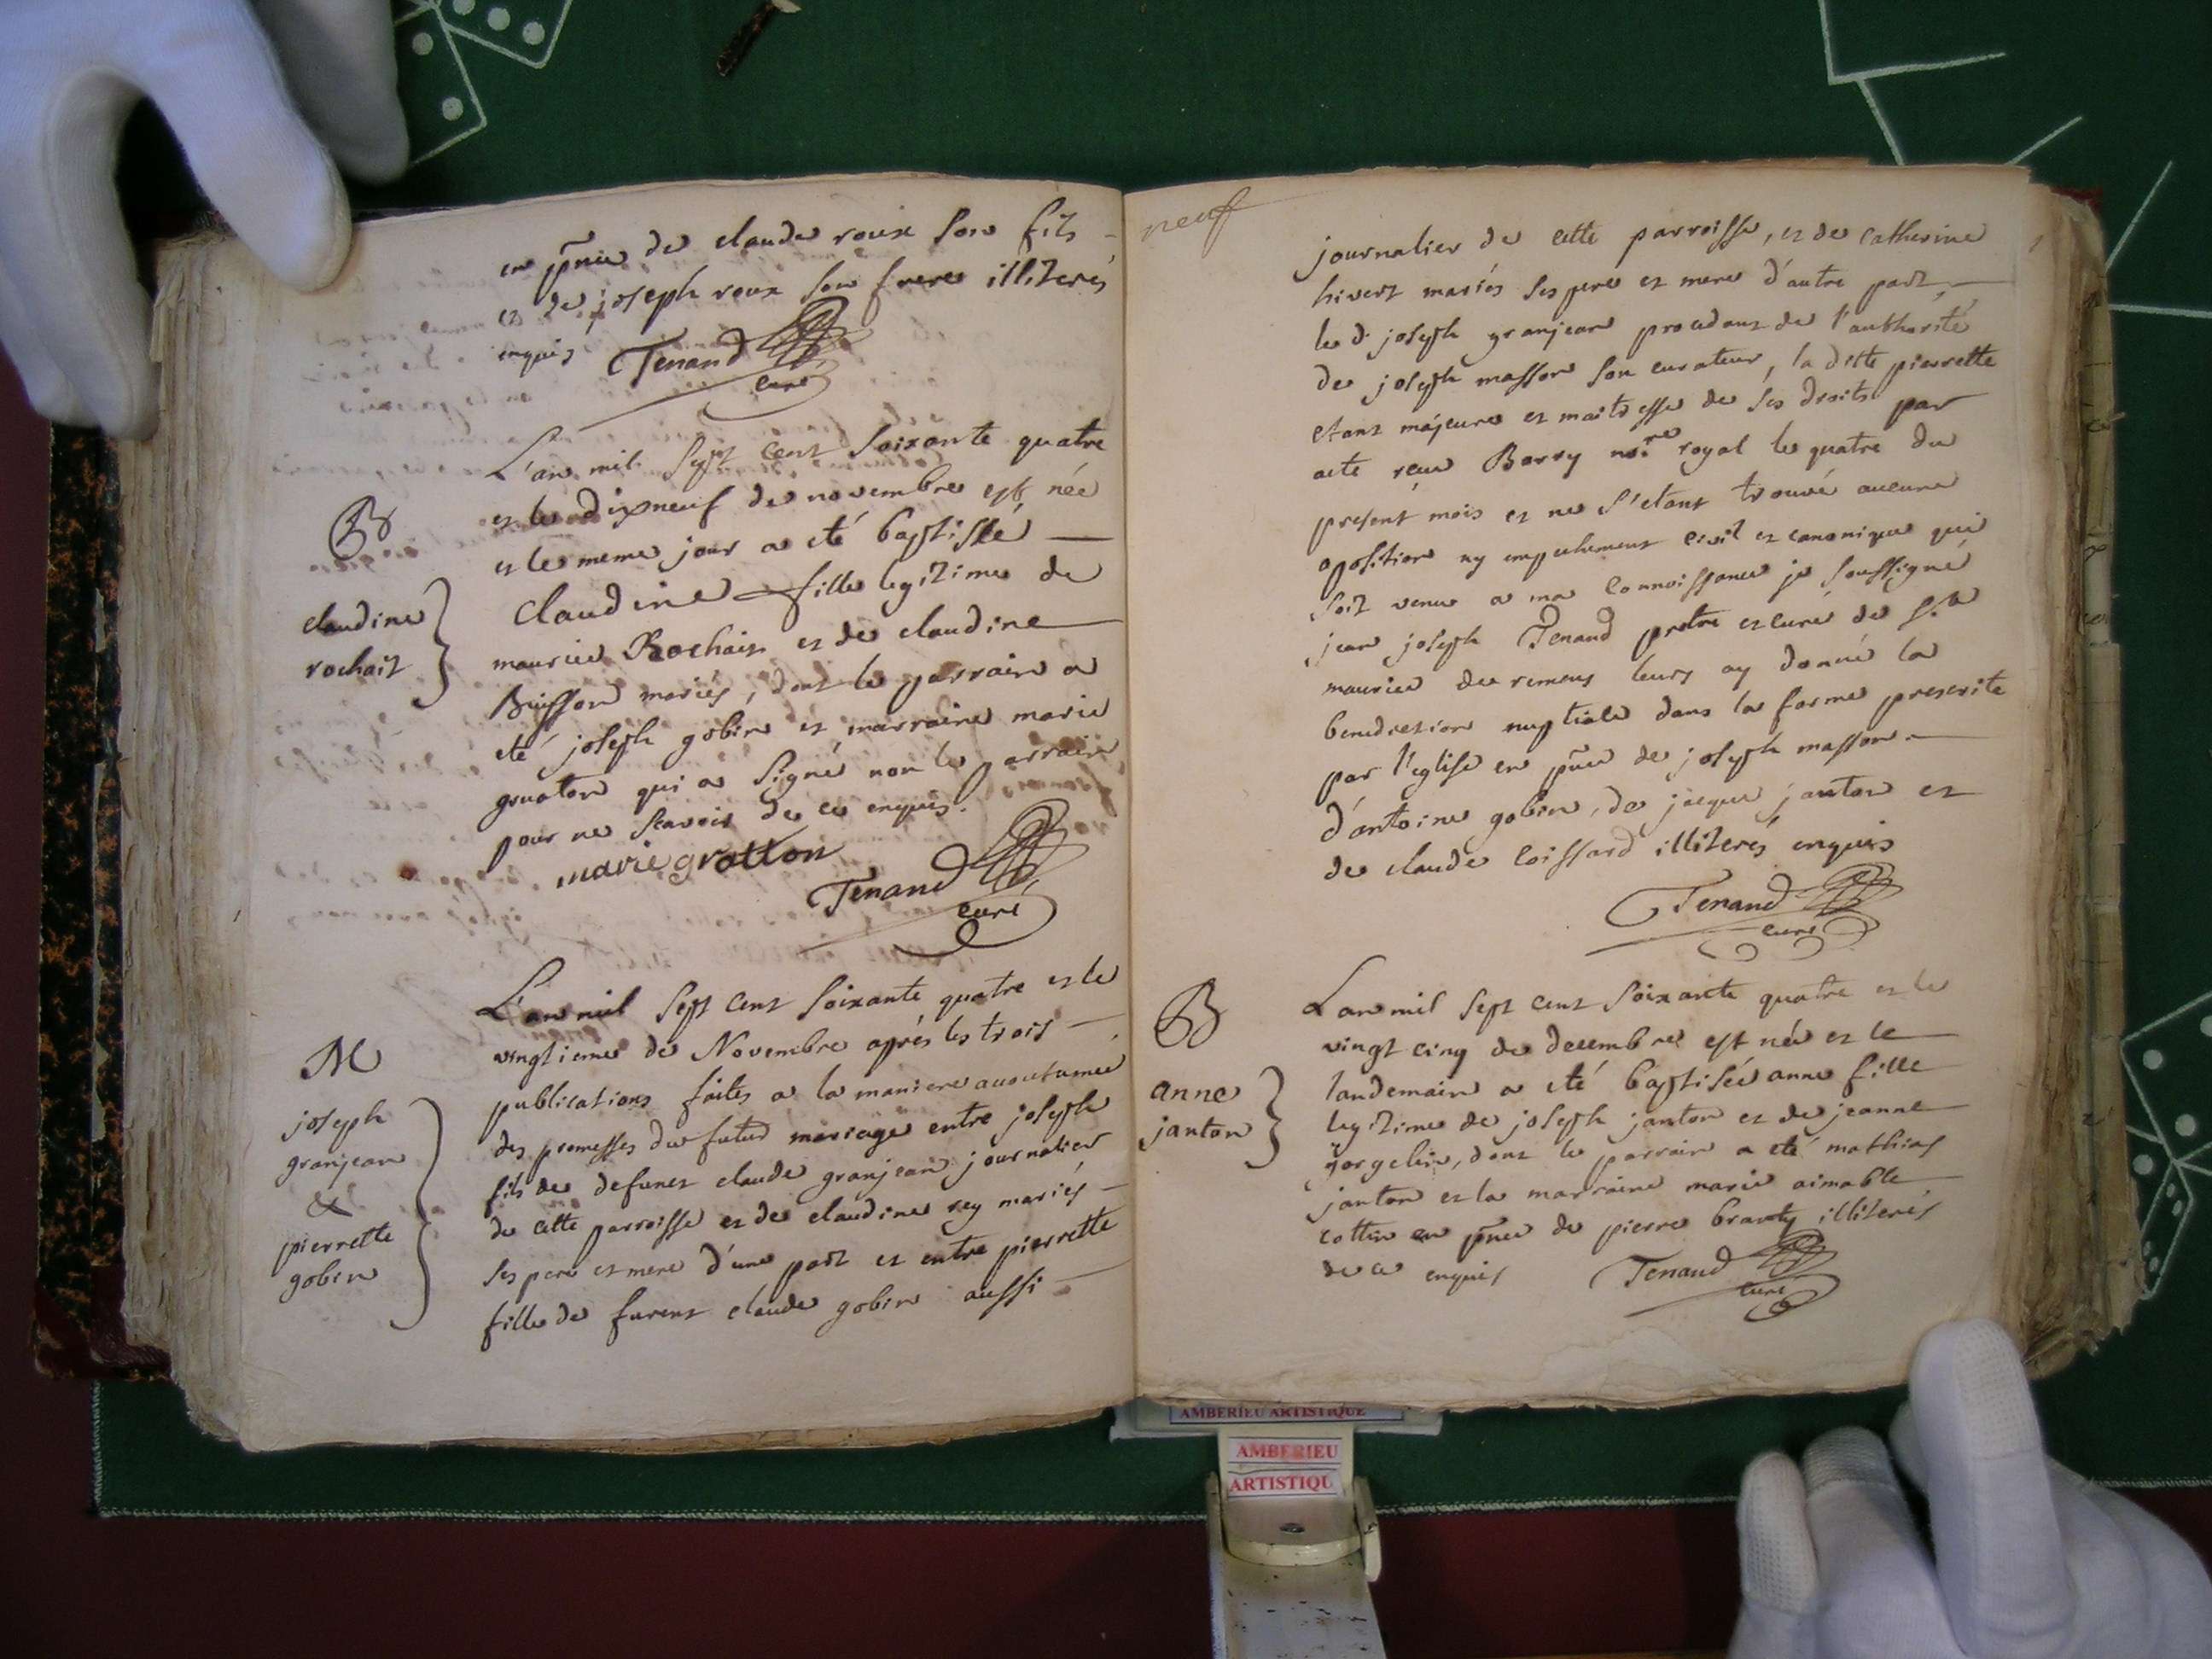 en pñce de claude roux son fils
et de joseph roux son frere illiterés
enquis Tenand
curé
L'an mil sept cent soixante quatre
et le dixneuf de novembre est née
et le meme jour a eté baptissée
B
claudine
rochait
Claudine fille legitime de
maurice Rochait et de claudine
Buisson mariés, dont le parrain a
eté joseph gobin et marraine marie
gruaton qui a signé non le parrain
pour ne scavoir de ce enquis.
marie gratton
Tenand
curé
L'an mil sept cent soixante quatre et le
vingtieme de Novembre aprés les trois
publications faites a la maniere accoutumée
des promesses du futur mariage entre joseph
fils de defunct claude granjean journalier
de cette parroisse et de claudine rey mariés
ses pere et mere d'une part et entre pierrette
fille de furent claude gobin aussi
M
joseph
granjean
&
pierrette
gobin
neuf
journalier de cette parroisse, et de catherine
hivert mariés ses pere et mere d'autre part,
le d. joseph granjean procedant de l'authorité
de joseph masson son curateur, la ditte pierrette
etant majeure et maitresse de ses droits par
acte reçu Barry nore. royal le quatre du
present mois et ne s'etant trouvé aucune
oposition ny empechement civil et canonique qui
soit venu a ma connoissance je soussigné
jean joseph Tenand pretre et curé de St
maurice de remens leurs ay donné la
benediction nuptiale dans la forme prescrite
par l'eglise en pñce de joseph masson
d'antoine gobin, de jacque janton et
de claude coissard illiterés enquis
Tenand
curé
B
anne
janton
L'an mil sept cent soixante quatre et le
vingt cinq de decembre est née et le
landemain a eté baptisée anne fille
legitime de joseph janton et de jeanne
gorgelin, dont le parrain a eté mathias
janton et la marraine marie aimable
cottin en pñce de pierre branty illiterés
de ce enquis Tenand
curé
AMBERIEU ARTISTIQUE
AMBERIEU
ARTISTIQU